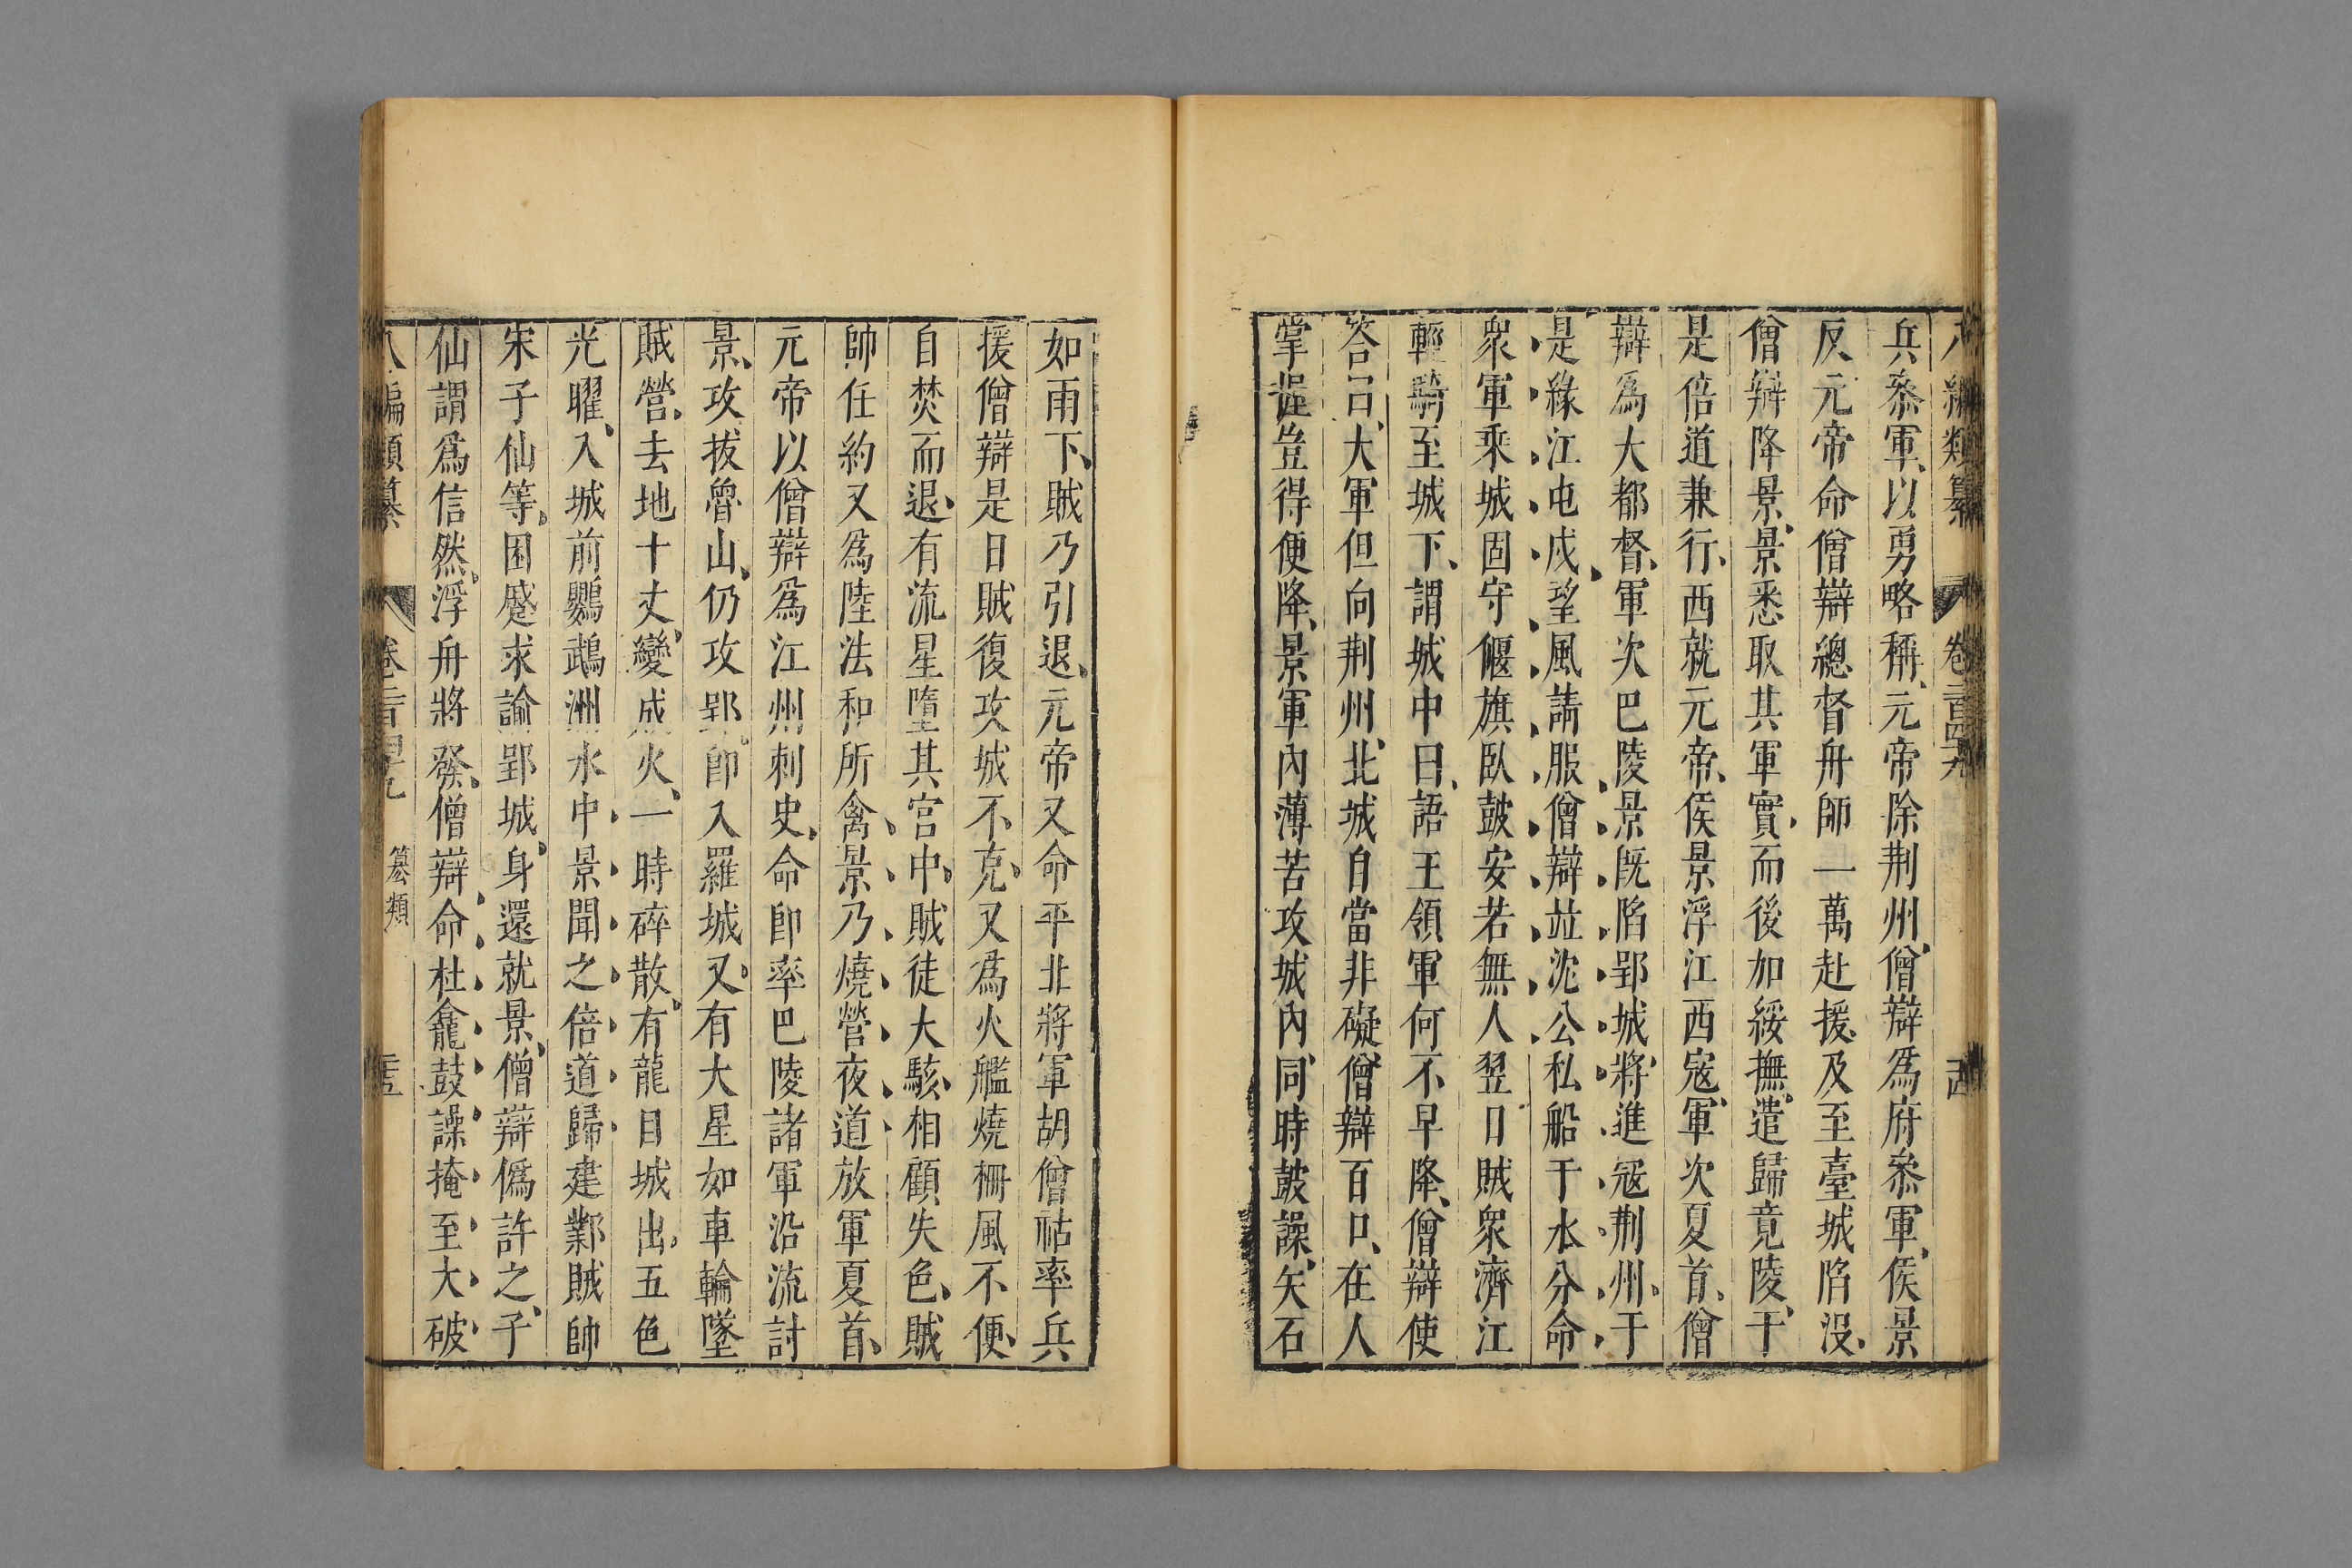 八編類纂 卷二百四十九
兵叅軍、以勇略稱、元帝除荆州、僧辯爲府叅軍、侯景
反、元帝命僧辯總督舟師一萬赴援、及至臺城陷沒、
僧辯降景、景悉取其軍實、而後加綏撫、遣歸竟陵、于
是倍道兼行、西就元帝、侯景浮江西寇、軍次夏首、僧
辯爲大都督、軍次巴陵、景旣陷郢城、將進寇荆州、于
是緣江屯戍、望風請服、僧辯並沈公私船于水、分命
衆軍乘城固守、偃旗臥鼓、安若無人、翌日賊衆濟江
輕騎至城下、謂城中曰、語王領軍何不早降、僧辯使
答曰、大軍但向荆州、北城自當非礙、僧辯百口、在人
掌握、豈得便降、景軍內薄苦攻、城內同時鼓譟、矢石
如雨下、賊乃引退、元帝又命平北將軍胡僧祐率兵
援僧辯、是日賊復攻城不克、又爲火艦燒柵、風不便、
自焚而退、有流星墮其宮中、賊徒大駭、相顧失色、賊
帥任約又爲陸法和所禽、景乃燒營夜道、放軍夏首、
元帝以僧辯爲江州刺史、命卽率巴陵諸軍沿流討
景、攻拔魯山、仍攻郢、卽入羅城、又有大星如車輪墜
賊營、去地十丈、變成火、一時碎散、有龍目城出、五色
光曜、入城前鸚鵡洲水中、景聞之、倍道歸建鄴、賊帥
宋子仙等、困蹙求論郢城、身還就景、僧辯僞許之、子
仙謂爲信然、浮舟將發、僧辯命杜龕鼓譟掩至、大破
八編類纂 卷二百四十九 纂類 二十五